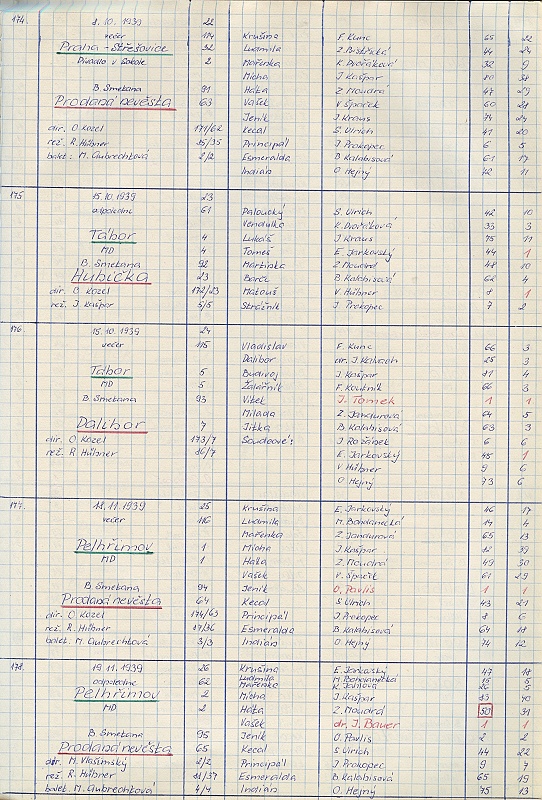 174. 8.10.1939 22
večer 114 Krušina F. Kunc 65 22
Praha - Střešovice 32 Ludmila Z. 44 24
Divadlo v Sokole 2 Mařenka K. Dvořáková 32 9
Mícha J. Kašpar 80 38
B. Smetana 91 Háta Z. Moudrá 47 29
Prodaná nevěsta 63 Vašek V. Špaček 60 28
Jeník J. Kraus 74 24
dir. O. Kozel 171/62 Kecal S. Ulrich 41 20
rež. R. Hübner 35/35 Principál J. Prokopec 6 5
balet: M. Gubrechtová 2/2 Esmeralda B. Kalabisová 61 17
Indián O. Hejný 72 11
175. 15.10.1939 23
odpoledne 61 Paloucký S. Ulrich 42 10
Vendulka K. Dvořáková 33 3
Tábor 4 Lukáš J. Kraus 75 11
MD 4 Tomeš E. Jarkovský 44 1
B. Smetana 92 Martinka Z. Moudrá 48 10
Hubička 23 Barče B. Kalabisová 62 4
dir. O. Kozel 172/23 Matouš V. Hübner 8 1
rež. J. Kašpar 5/5 Strážník J. Prokopec 7 2
176. 15.10.1939 24
večer 115 Vladislav F. Kunc 66 3
Dalibor dr. J. 25 3
Tábor 5 Budivoj J. Kašpar 81 4
MD 5 Žalářník F. Koutník 66 3
B. Smetana 93 Vítek J. Tomek 1 1
Milada Z. Jandurová 64 5
Dalibor 7 Jitka B. Kalabisová 63 3
dir. O. Kozel 173/7 Soudcové: J. Rožánek 6 6
rež. R. Hübner 36/7 E. Jarkovský 45 1
V. Hübner 9 6
O. Hejný 73 6
177. 18.11.1939 25 Krušina E. Jarkovský 46 17
večer 116 Ludmila M. Bohdanecká 14 4
Mařenka Z. Jandurová 65 13
Pelhřimov 1 Mícha J. Kašpar 82 39
MD 1 Háta Z. Moudrá 49 30
Vašek V. Špaček 61 29
B. Smetana 94 Jeník O. Pavlis 1 1
Prodaná nevěsta 64 Kecal S. Ulrich 43 21
dir. O. Kozel 174/63 Principál J. Prokopec 8 6
rež. R. Hübner 37/36 Esmeralda B. Kalabisová 64 18
balet: M. Gubrechtová 3/3 Indián O. Hejný 74 12
178. 19.11.1939 26 Krušina E. Jarkovský 47 18
odpoledne 62 Ludmila M. Bohdanecká 15 5
Mařenka 5
Pelhřimov 2 Mícha J. Kašpar 83 40
MD 2 Háta Z. Moudrá 50 31
Vašek dr. J. Bauer 1 1
B. Smetana 95 Jeník O. Pavlis 2 2
Prodaná nevěsta 65 Kecal S. Ulrich 44 22
dir. M. Vlasimský 2/2 Principál J. Prokopec 9 7
rež. R. Hübner 38/37 Esmeralda B. Kalabisová 65 19
balet: M. Gubrechtová 4/4 Indián O. Hejný 75 13